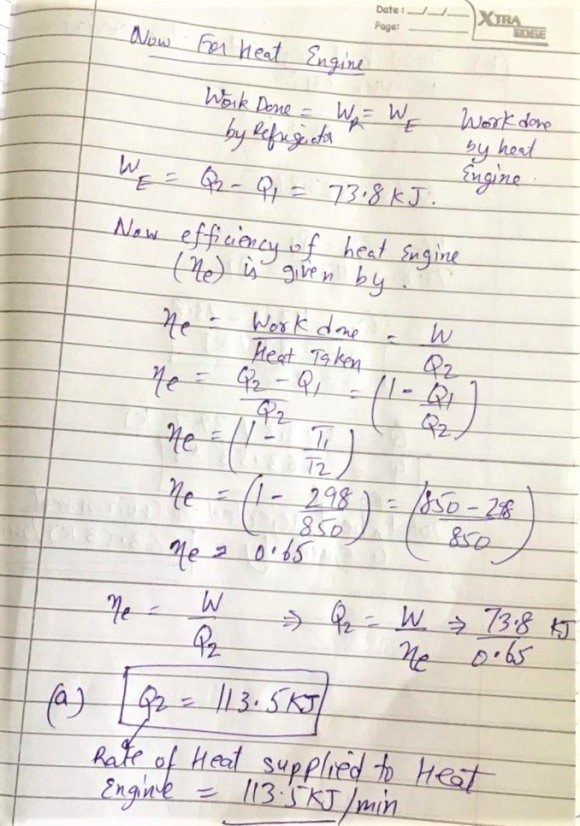 Date: __/__/__
Page: ........ XTRA EDGE
Now For Heat Engine
Work Done = W_R = W_E Work done
by Refrigirator by heat
Engine.
W_E = Q2 - Q1 = 73.8 KJ.
Now efficiency of heat Engine
(ηe) is given by.
ηe = Work done / Heat Taken = W / Q2
ηe = (Q2 - Q1) / Q2 = (1 - Q1/Q2)
ηe = (1 - T1/T2)
ηe = (1 - 298/850) = (850 - 298 / 850)
ηe = 0.65
ηe = W/Q2 ⇒ Q2 = W/ηe ⇒ 73.8/0.65 KJ
(a) Q2 = 113.5 KJ
Rate of Heat supplied to Heat
Engine = 113.5 KJ/min